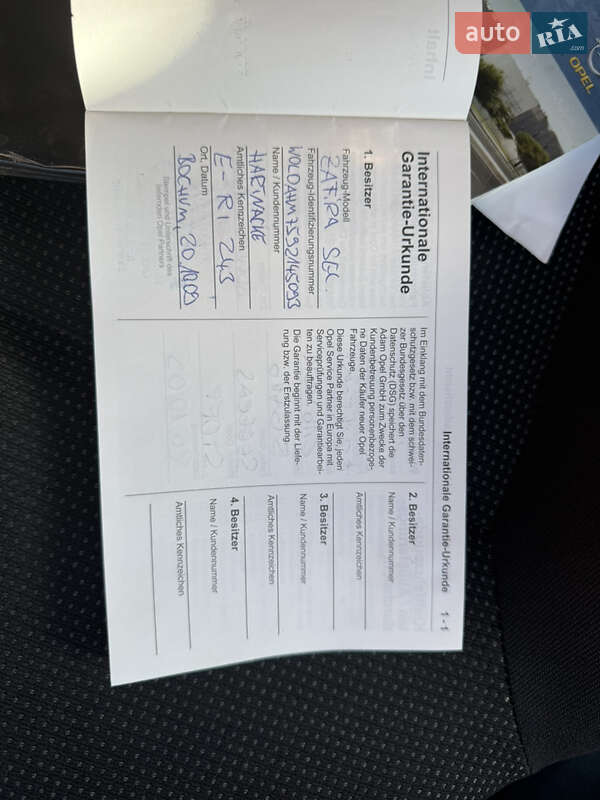 auto
RIA
.com
OPEL
Internationale Garantie-Urkunde 1 - 1
Internationale
Garantie-Urkunde
1. Besitzer
Fahrzeug-Modell
ZAFIRA
Fahrzeug-Identifizierungsnummer
W0L0AHM7592145093
Name / Kundennummer
HARTNACKE
Amtliches Kennzeichen
E-RI 243
Ort, Datum
BOCHUM 20.10.09
Stempel und Unterschrift des
liefernden Opel Partners
Im Einklang mit dem Bundesdaten-
schutzgesetz bzw. mit dem schwei-
zer Bundesgesetz über den
Datenschutz (DSG) speichert die
Adam Opel GmbH zum Zwecke der
Kundenbetreuung personenbezoge-
ne Daten der Käufer neuer Opel
Fahrzeuge.
Diese Urkunde berechtigt Sie, jeden
Opel Service Partner in Europa mit
Serviceprüfungen und Garantiearbei-
ten zu beauftragen.
Die Garantie beginnt mit der Liefe-
rung bzw. der Erstzulassung
2. Besitzer
Name / Kundennummer
Amtliches Kennzeichen
3. Besitzer
Name / Kundennummer
Amtliches Kennzeichen
4. Besitzer
Name / Kundennummer
Amtliches Kennzeichen